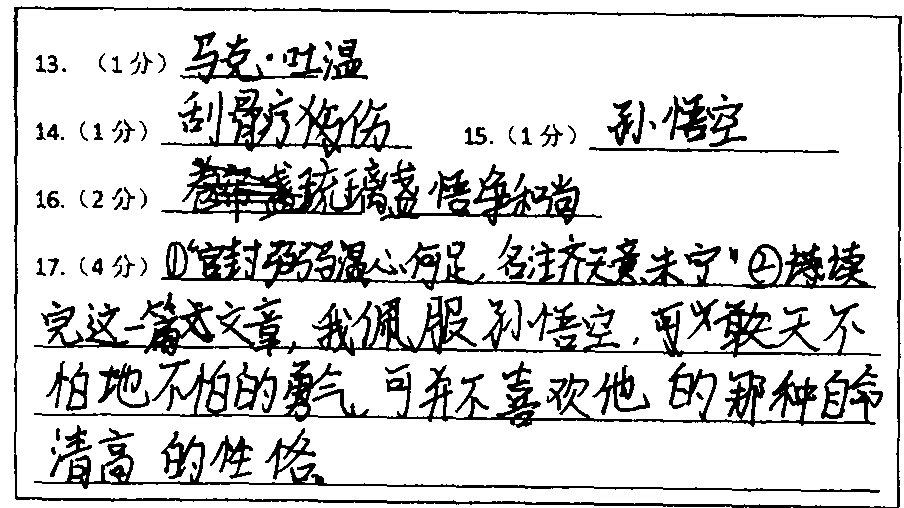 13. (1分) 马克·吐温
14.(1分) 刮骨疗伤 15.(1分) 孙悟空
16.(2分) 琉璃盏 悟净和尚
17.(4分) ①"官封弼温心何足,名注齐天意未宁"②读
完这一篇文章,我佩服孙悟空,可以敢天不
怕地不怕的勇气,可并不喜欢他的那种自命
清高的性格。